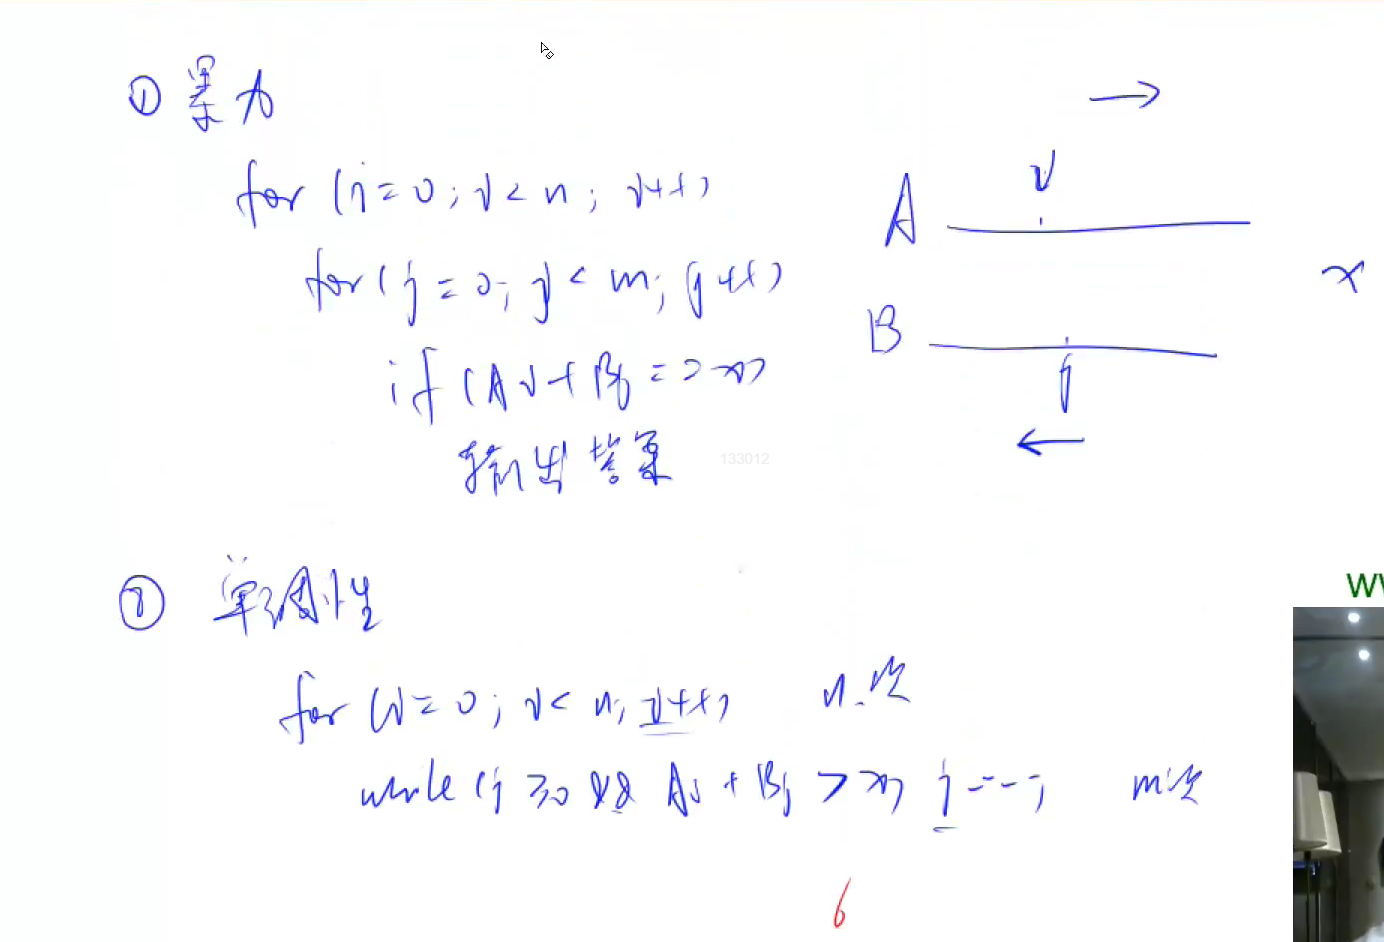 ① 暴力
for (i=0; i<n; i++)
for (j=0; j<m; j++)
if (Ai+Bj==x)
输出答案
133012
→
i
A
x
B
j
←
② 单调性
for (i=0; i<n; i++) n次
while (j≥0 && Ai+Bj>x) j--; m次
6